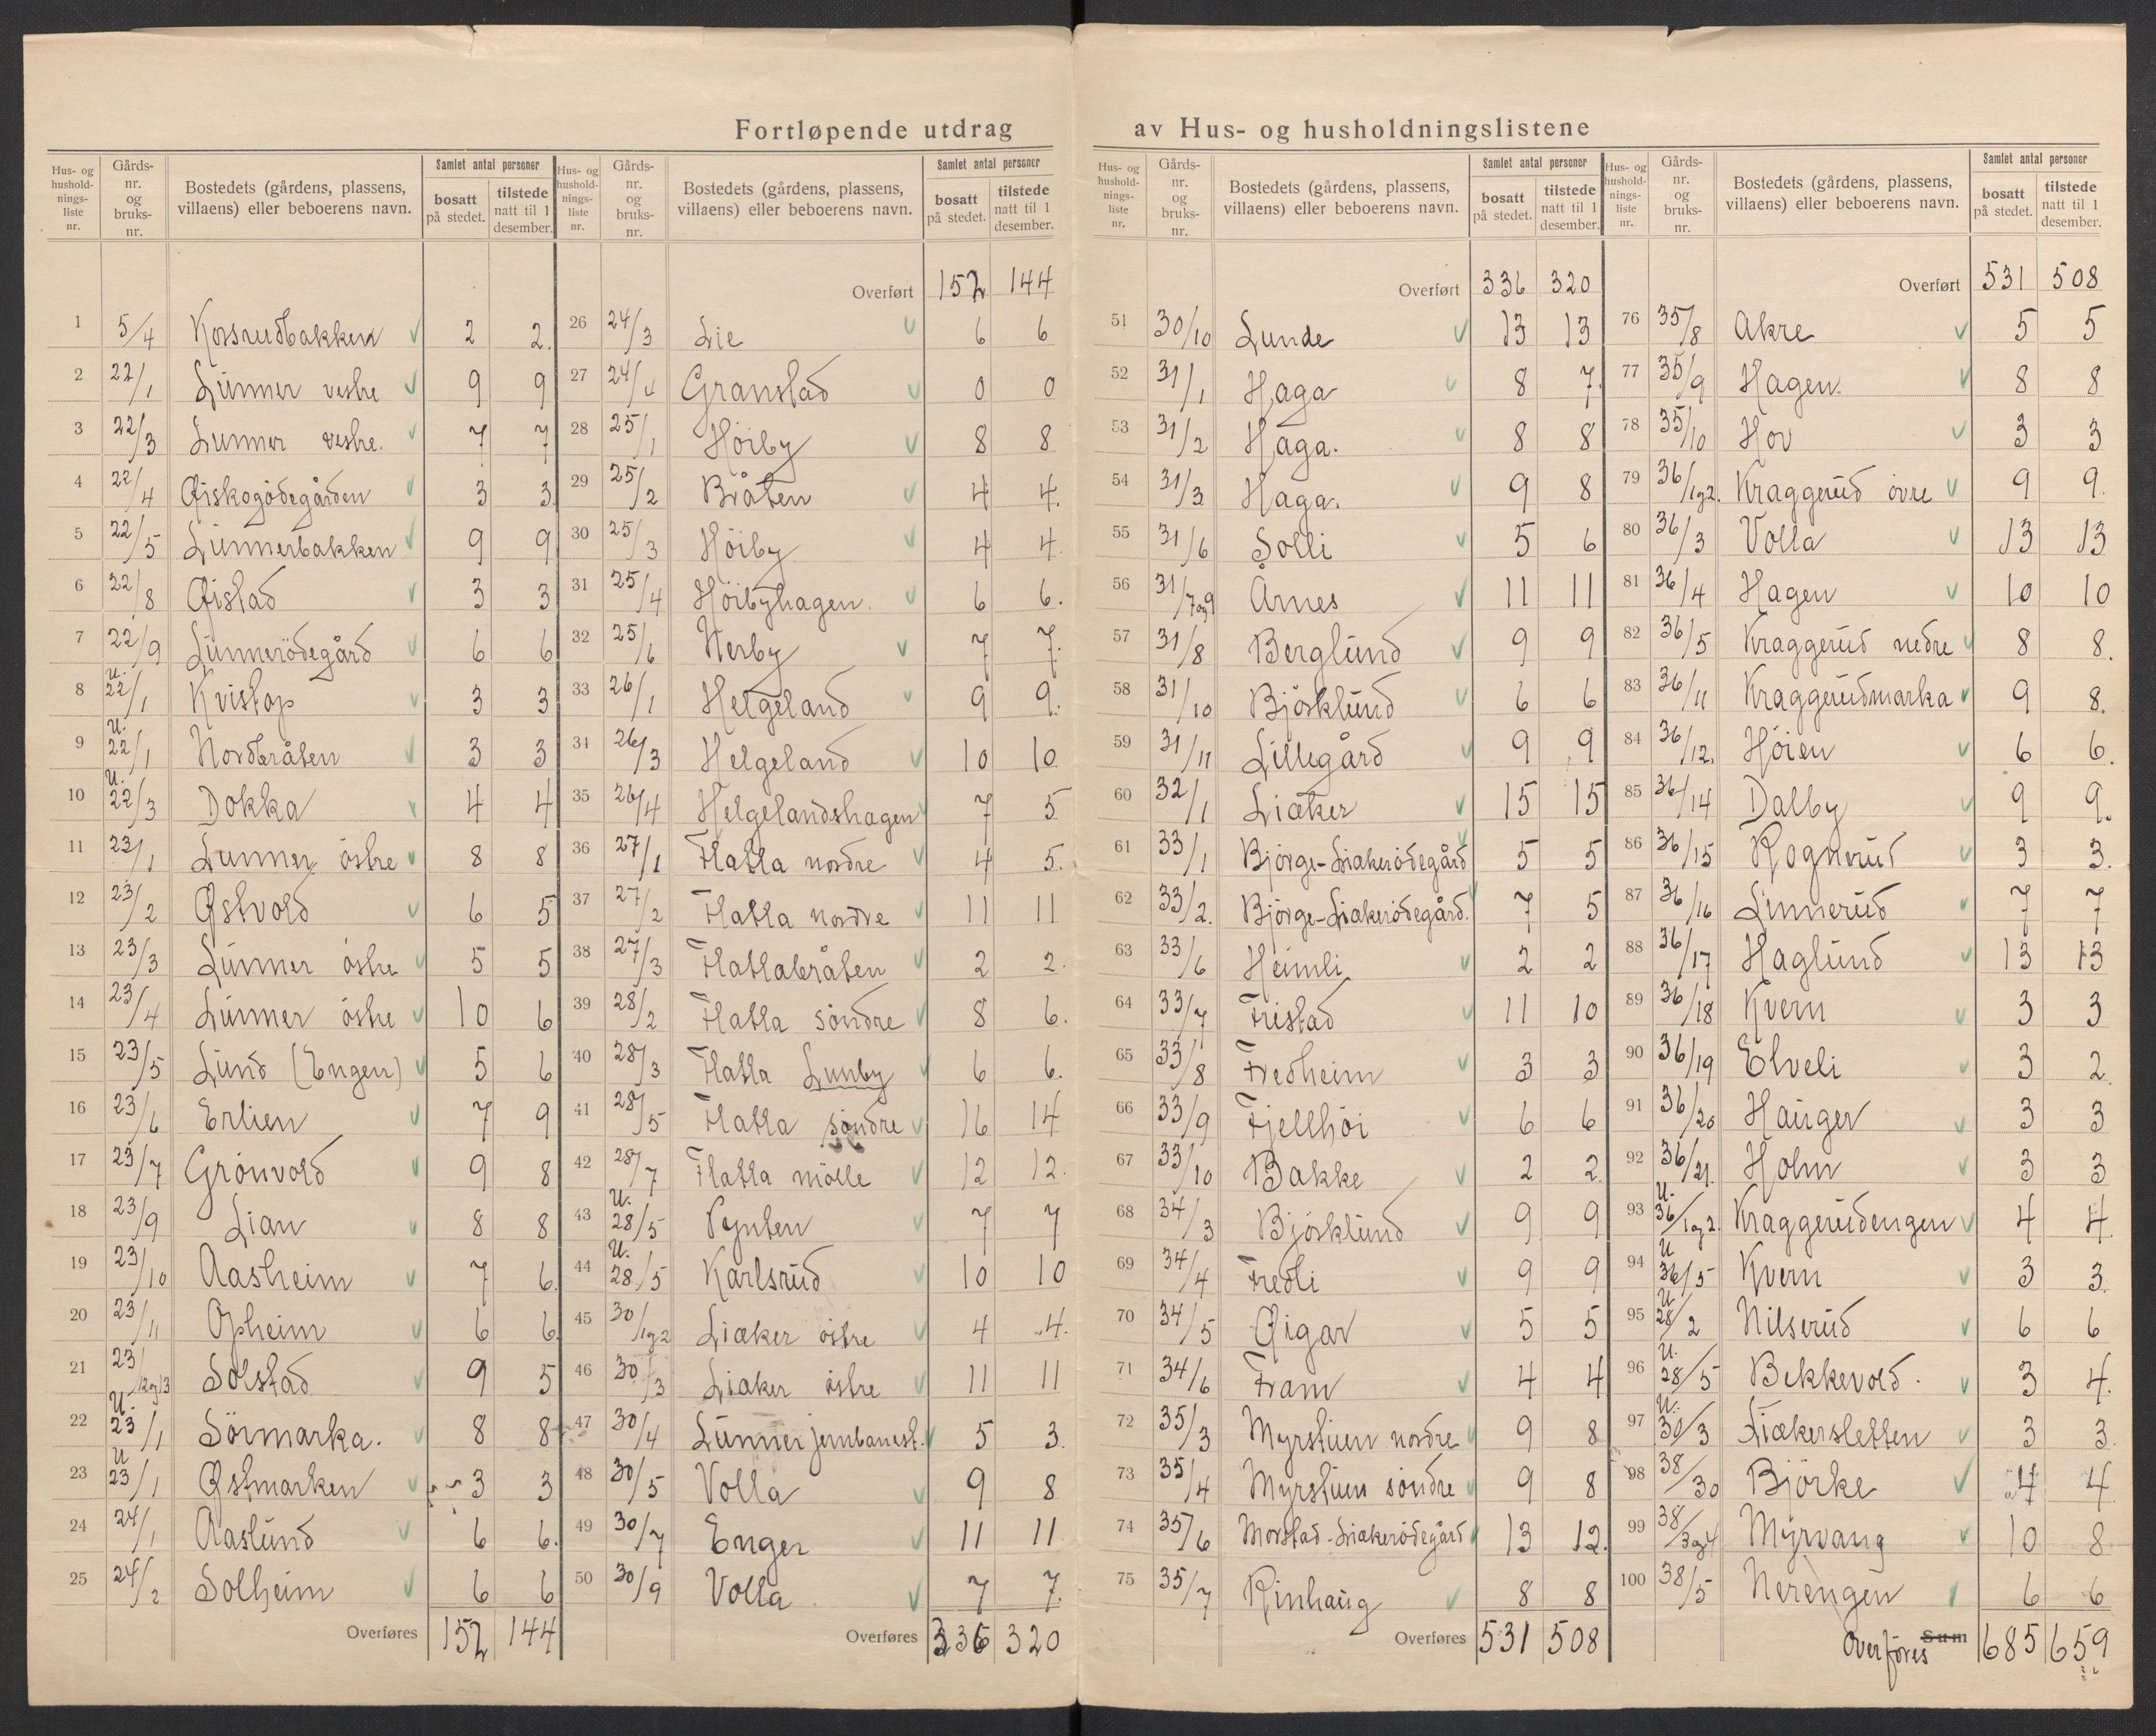 Fortløpende utdrag av Hus- og husholdningslistene
Hus- og hushold-nings-liste nr. Gårds-nr. og bruks-nr. Bostedets (gårdens, plassens, villaens) eller beboerens navn. Samlet antal personer bosatt på stedet. tilstede natt til 1 desember.
1 5/4 Kossrudbakken 2 2.
2 22/1 Lunner vestre 9 9
3 22/3 Lunner vestre. 7 7
4 22/4 Qiskogödegården 3 3.
5 22/5 Lunnerbakken 9 9
6 22/8 Qistad 3 3
7 22/9 Lunnerödegård 6 6
8 U. 22/1 Kvistop 3 3
9 U. 22/1 Nordbråten 3 3
10 U. 22/3 Dokka 4 4
11 23/1 Lunner östre 8 8
12 23/2 Østvold 6 5
13 23/3 Lunner östre 5 5
14 23/4 Lunner östre 10 6
15 23/5 Lund (Engen) 5 6
16 23/6 Erlien 7 9
17 23/7 Grönvold 9 8
18 23/9 Lian 8 8
19 23/10 Aasheim 7 6.
20 23/11 Opheim 6 6.
21 23/12og13 Solstad 9 5
22 U. 23/1 Sörmarka. 8 8
23 U 23/1 Østmarken 3 3
24 24/1 Aaslund 6 6.
25 24/2 Solheim 6 6
Overføres 152 144
Hus- og hushold-nings-liste nr. Gårds-nr. og bruks-nr. Bostedets (gårdens, plassens, villaens) eller beboerens navn. Samlet antal personer bosatt på stedet. tilstede natt til 1 desember.
Overført 152 144
26 24/3 Lie 6 6
27 24/4 Granstad 0 0
28 25/1 Höiby 8 8
29 25/2 Bråten 4 4.
30 25/3 Höiby 4 4.
31 25/4 Höibyhagen. 6 6.
32 25/6 Nerby 7 7.
33 26/1 Helgeland 9 9.
34 26/3 Helgeland 10 10
35 26/4 Helgelandshagen 7 5
36 27/1 Flatla nordre 4 5.
37 27/2 Flatla nordre 11 11
38 27/3 Flatlabråten 2 2.
39 28/2 Flatla söndre 8 6.
40 28/3 Flatla Lunby 6 6.
41 28/5 Flatla söndre 16 14
42 28/7 Flatla mölle 12 12.
43 U. 28/5 Pynten 7 7
44 U. 28/5 Karlsrud 10 10
45 30/1og2 Liæker östre 4 4.
46 30/3 Liaker östre 11 11
47 30/4 Lunner jernbanest. 5 3.
48 30/5 Volla 9 8
49 30/7 Enger 11 11
50 30/9 Volla 7 7.
Overføres 336 320
Hus- og hushold-nings-liste nr. Gårds-nr. og bruks-nr. Bostedets (gårdens, plassens, villaens) eller beboerens navn. Samlet antal personer bosatt på stedet. tilstede natt til 1 desember.
Overført 336 320
51 30/10 Lunde 13 13
52 31/1 Haga 8 7.
53 31/2 Haga. 8 8
54 31/3 Haga. 9 8
55 31/6 Solli 5 6
56 31/7og9 Arnes 11 11
57 31/8 Berglund 9 9
58 31/10 Björklund 6 6
59 31/11 Lillegård 9 9
60 32/1 Liæker 15 15
61 33/1 Björge-Liakerödegård 5 5
62 33/2. Björge-Liakerödegård. 7 5
63 33/6 Heimli 2 2
64 33/7 Fristad 11 10
65 33/8 Fredheim 3 3
66 33/9 Fjellhöi 6 6
67 33/10 Bakke 2 2.
68 34/3 Björklund 9 9
69 34/4 Fredli 9 9
70 34/5 Qigar 5 5
71 34/6 Fram 4 4
72 35/3 Myrstuen nordre 9 8
73 35/4 Myrstuen söndre 9 8
74 35/6 Morstad-Liakerödegård 13 12.
75 35/7 Rinhaug 8 8
Overføres 531 508
Hus- og hushold-nings-liste nr. Gårds-nr. og bruks-nr. Bostedets (gårdens, plassens, villaens) eller beboerens navn. Samlet antal personer bosatt på stedet. tilstede natt til 1 desember.
Overført 531 508
76 35/8 Akre 5 5
77 35/9 Hagen. 8 8
78 35/10 Hov 3 3
79 36/1og2. Kraggerud övre 9 9.
80 36/3 Volla 13 13
81 36/4 Hagen 10 10
82 36/5 Kraggerud nedre 8 8.
83 36/11 Kraggerudmarka 9 8.
84 36/12. Höien 6 6.
85 36/14 Dalby 9 9.
86 36/15 Rognerud 3 3.
87 36/16 Linnerud 7 7
88 36/17 Haglund 13 13
89 36/18 Kvern 3 3
90 36/19 Elveli 3 2.
91 36/20 Hauger 3 3
92 36/21. Holm 3 3
93 U. 36/1og2. Kraggerudengen 4 4.
94 U 36/5 Kvern 3 3.
95 U 28/2 Nilserud 6 6
96 U. 28/5 Bekkevold. 3 4.
97 U. 30/3 Liækersletten 3 3.
98 38/30 Björke 4 4.
99 38/3og4 Myrvang 10 8
100 38/5 Nerengen 6 6
Overföres Sum 685 659